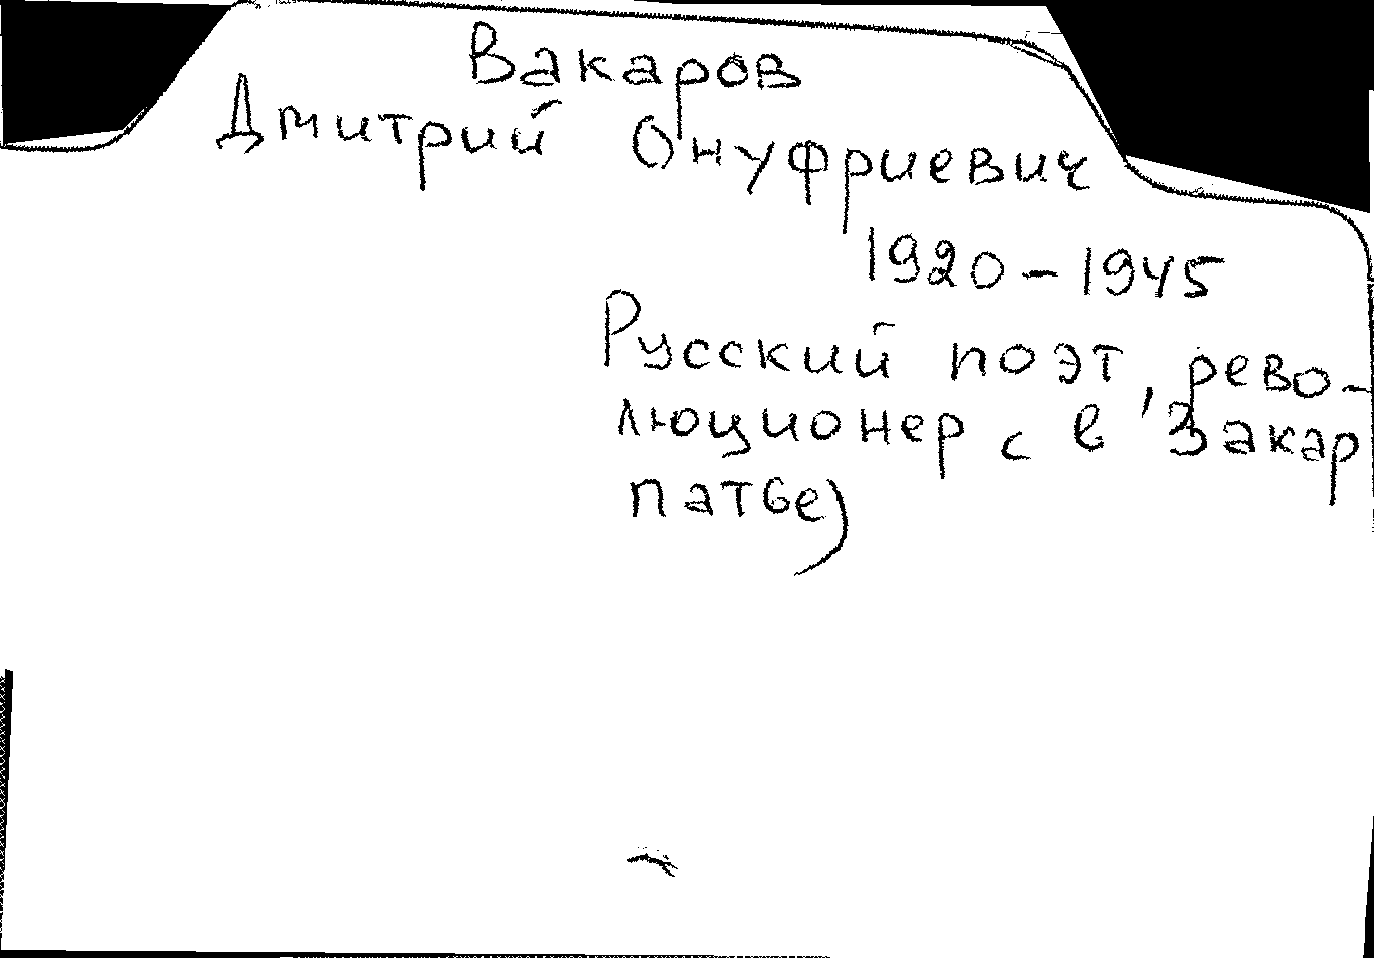 Вакаров
Дмитрий Онуфриевич
1920-1945
Русский поэт, рево-
люционер с в Закар
патье)